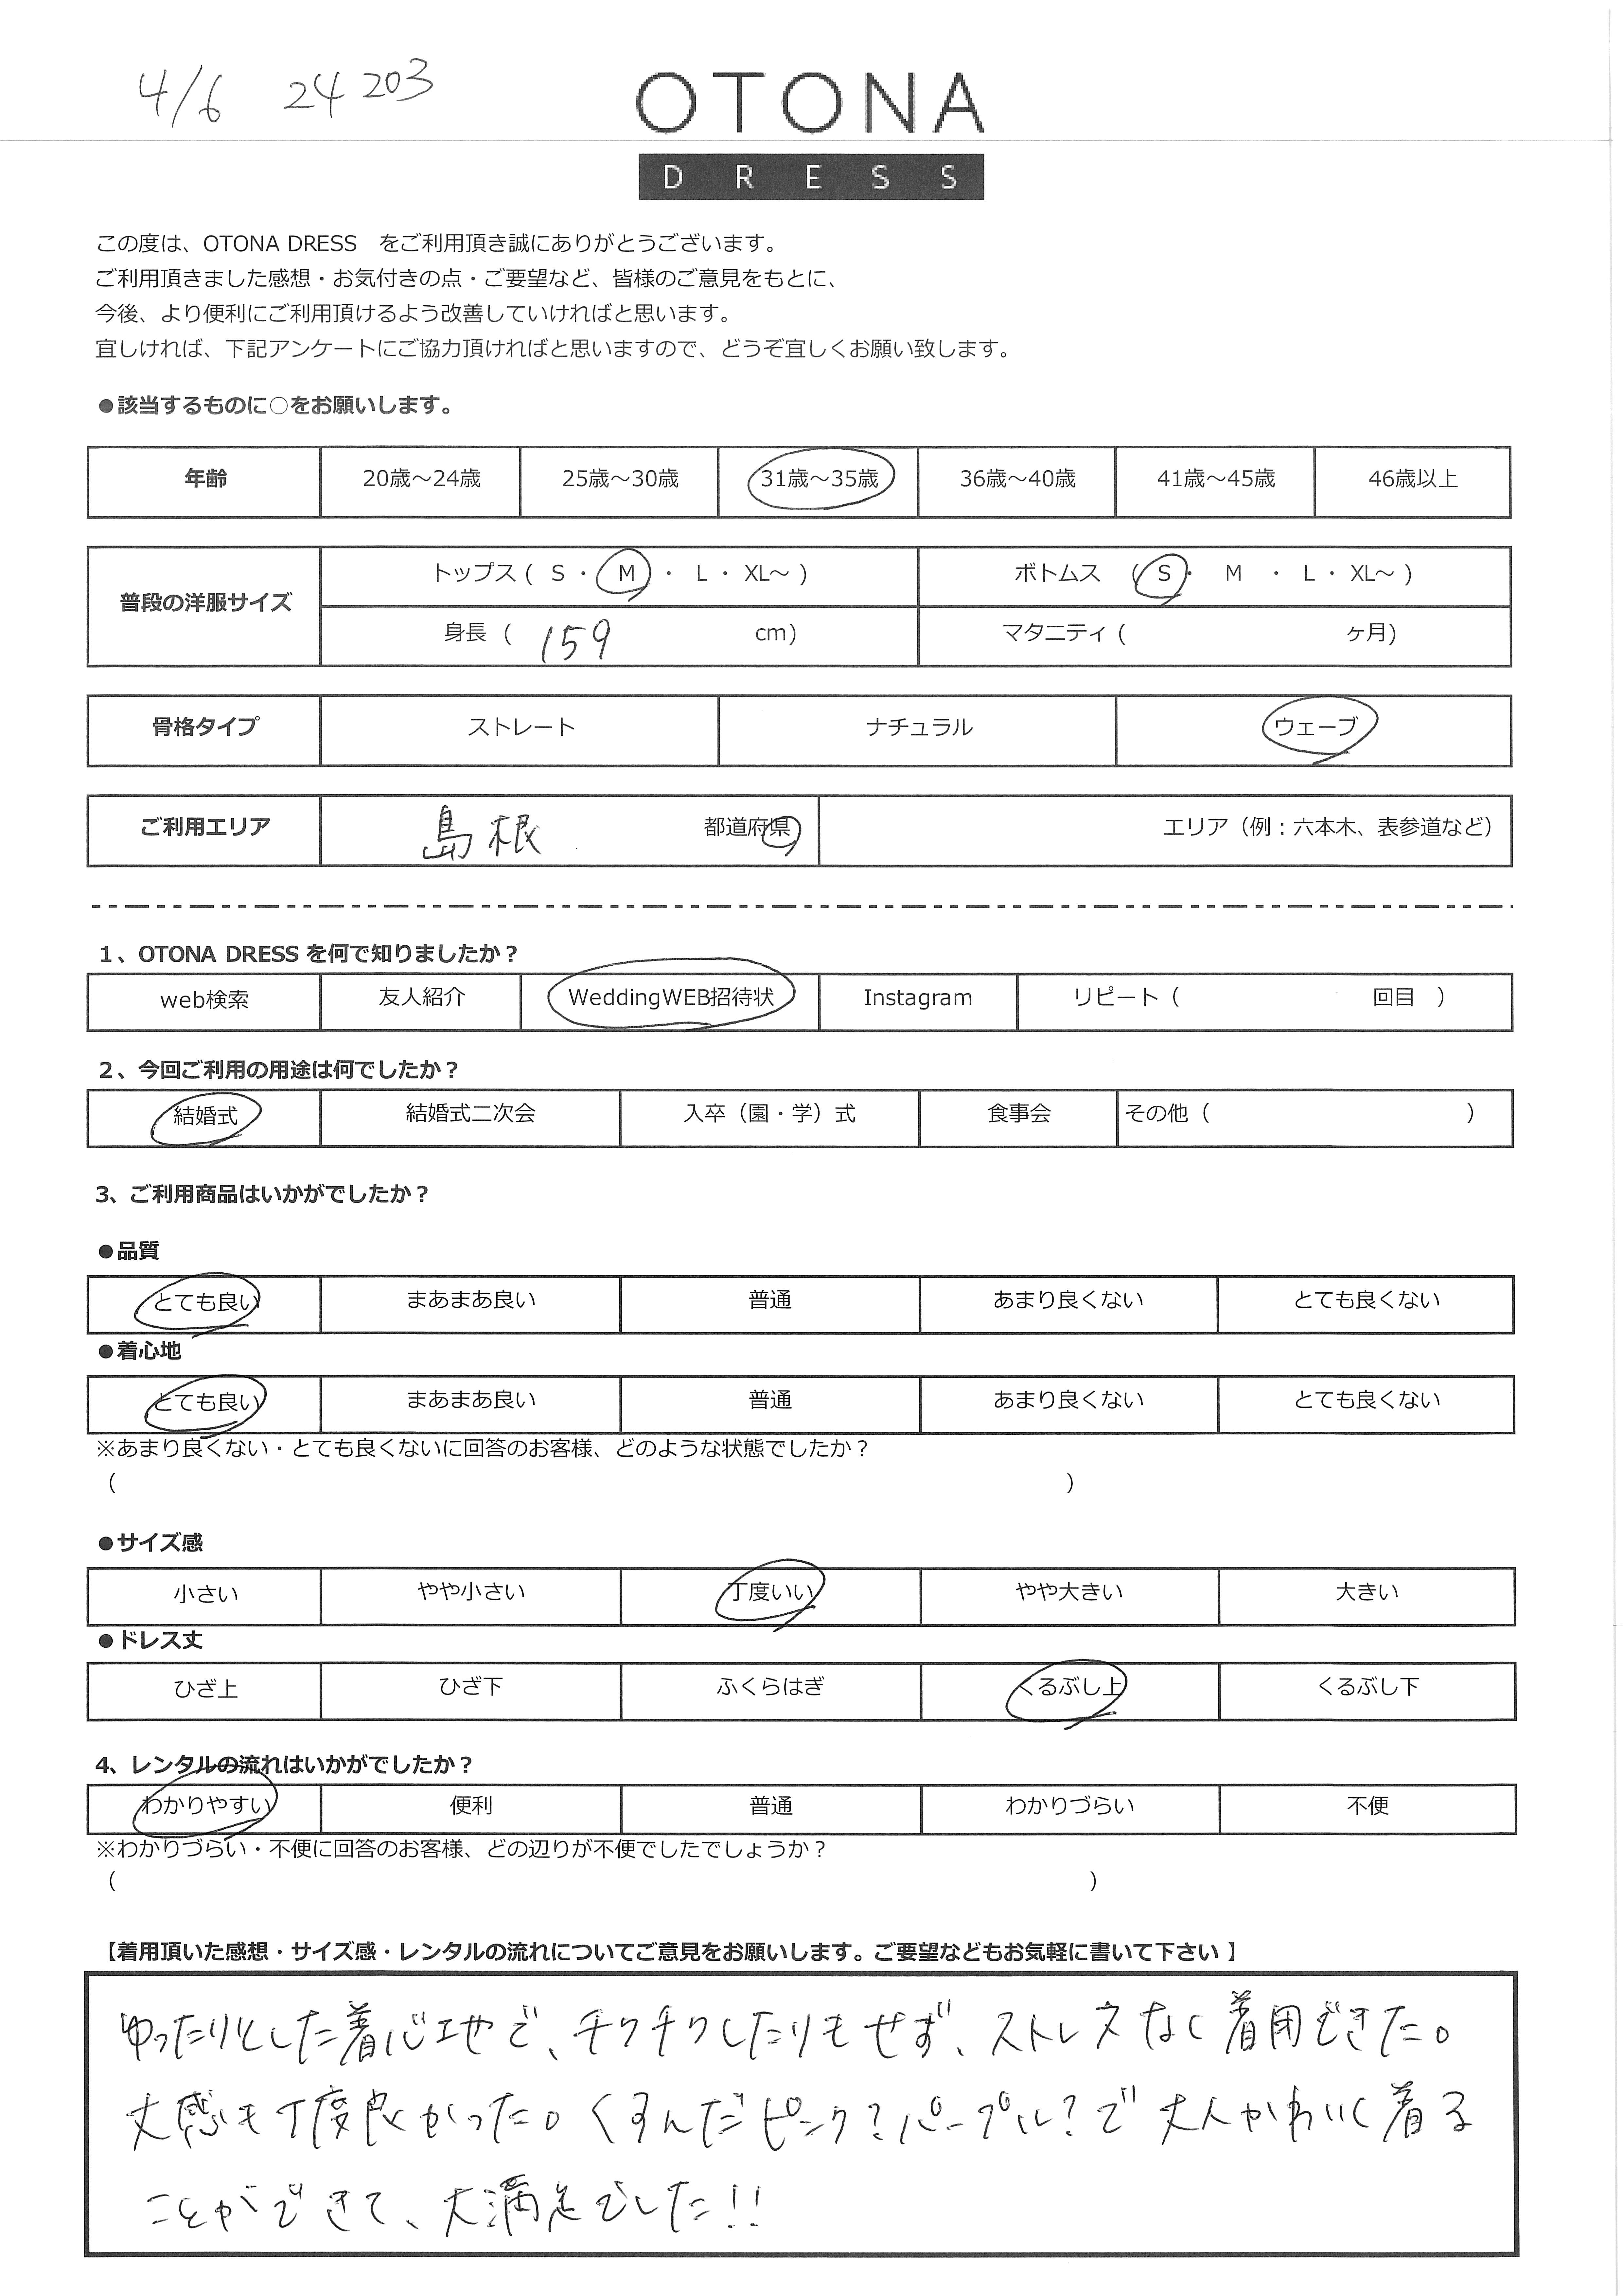 4/6 24203
OTONA
DRESS
この度は、OTONA DRESS をご利用頂き誠にありがとうございます。
ご利用頂きました感想・お気付きの点・ご要望など、皆様のご意見をもとに、
今後、より便利にご利用頂けるよう改善していければと思います。
宜しければ、下記アンケートにご協力頂ければと思いますので、どうぞ宜しくお願い致します。
●該当するものに○をお願いします。
年齢 20歳～24歳 25歳～30歳 31歳～35歳 36歳～40歳 41歳～45歳 46歳以上
普段の洋服サイズ トップス ( S ・ M ・ L ・ XL～ ) ボトムス ( S ・ M ・ L ・ XL～ )
身長 ( 159 cm) マタニティ ( ヶ月)
骨格タイプ ストレート ナチュラル ウェーブ
ご利用エリア 島根 都道府県 エリア（例：六本木、表参道など）
1、OTONA DRESS を何で知りましたか？
web検索 友人紹介 WeddingWEB招待状 Instagram リピート（ 回目 ）
2、今回ご利用の用途は何でしたか？
結婚式 結婚式二次会 入卒（園・学）式 食事会 その他（ ）
3、ご利用商品はいかがでしたか？
●品質
とても良い まあまあ良い 普通 あまり良くない とても良くない
●着心地
とても良い まあまあ良い 普通 あまり良くない とても良くない
※あまり良くない・とても良くないに回答のお客様、どのような状態でしたか？
（ ）
●サイズ感
小さい やや小さい 丁度いい やや大きい 大きい
●ドレス丈
ひざ上 ひざ下 ふくらはぎ くるぶし上 くるぶし下
4、レンタルの流れはいかがでしたか？
わかりやすい 便利 普通 わかりづらい 不便
※わかりづらい・不便に回答のお客様、どの辺りが不便でしたでしょうか？
（ ）
【着用頂いた感想・サイズ感・レンタルの流れについてご意見をお願いします。ご要望などもお気軽に書いて下さい 】
ゆったりとした着心地で、チクチクしたりもせず、ストレスなく着用できた。
丈感も丁度良かった。くすんだピンク？パープル？で大人かわいく着る
ことができて、大満足でした!!